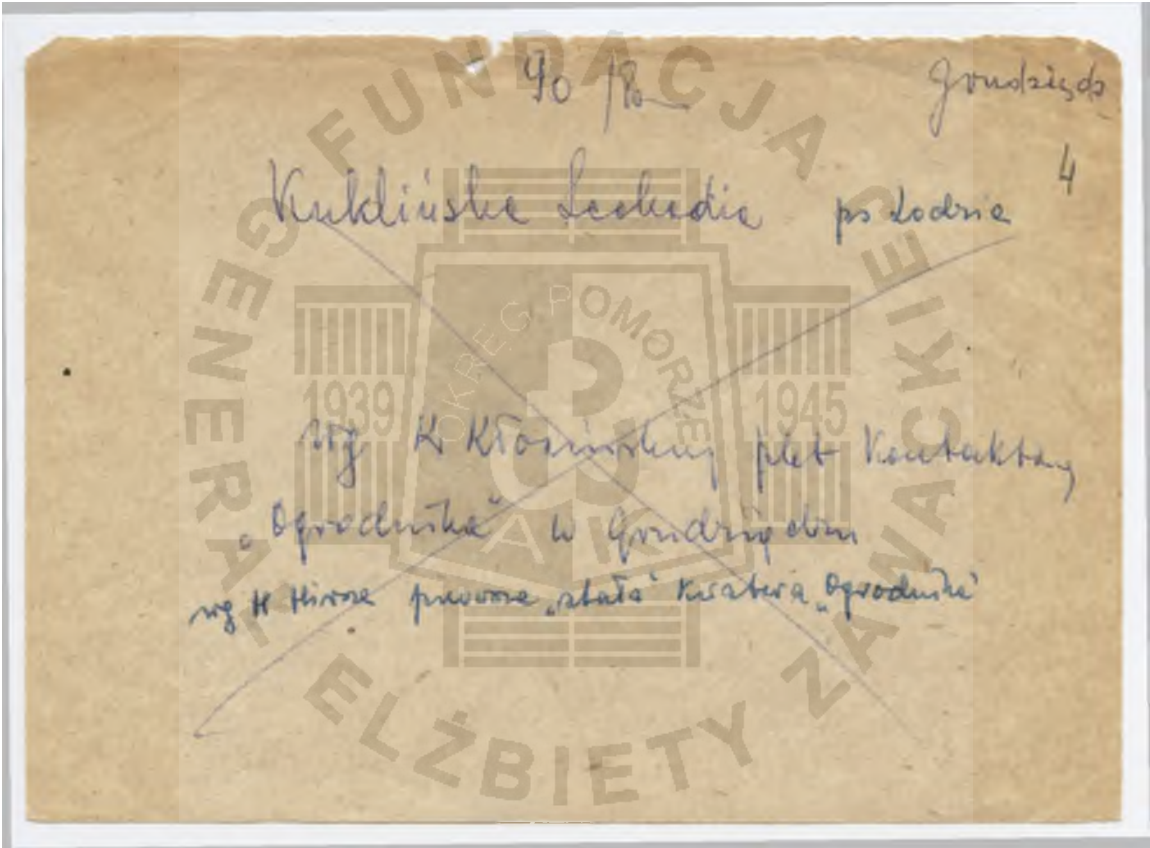 90 Grudziądz
4
Kuklińska Leokadia ps Łodzia
wg K Kłosińskiej pkt Kontaktowy
„Ogrodnika" w Grudziądzu
wg H „stała" Kwatera „Ogrodnika"
FUNDACJA
GENERAŁ ELŻBIETY ZAWACKIEJ
OKRĘG POMORZE
1939 1945
AK